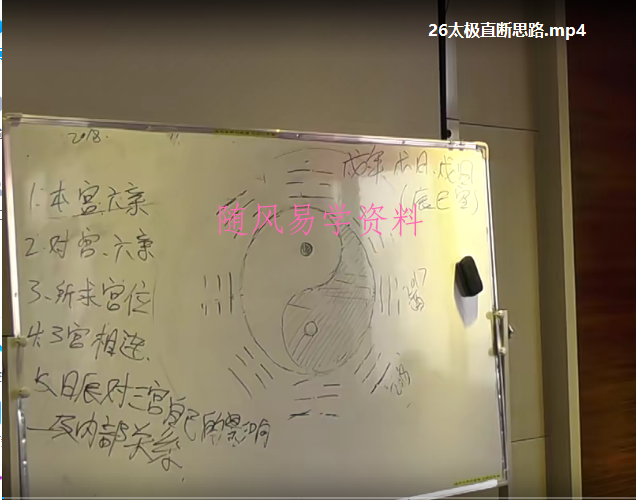 26太极直断思路.mp4
2018.
戌年 戌日 戌日
(辰巳空)
随风易学资料
1.本宫六亲
2.对宫、六亲
3、所求宫位
4.3宫相连.
5、日辰对三宫自己的影响
及内部关系
2017